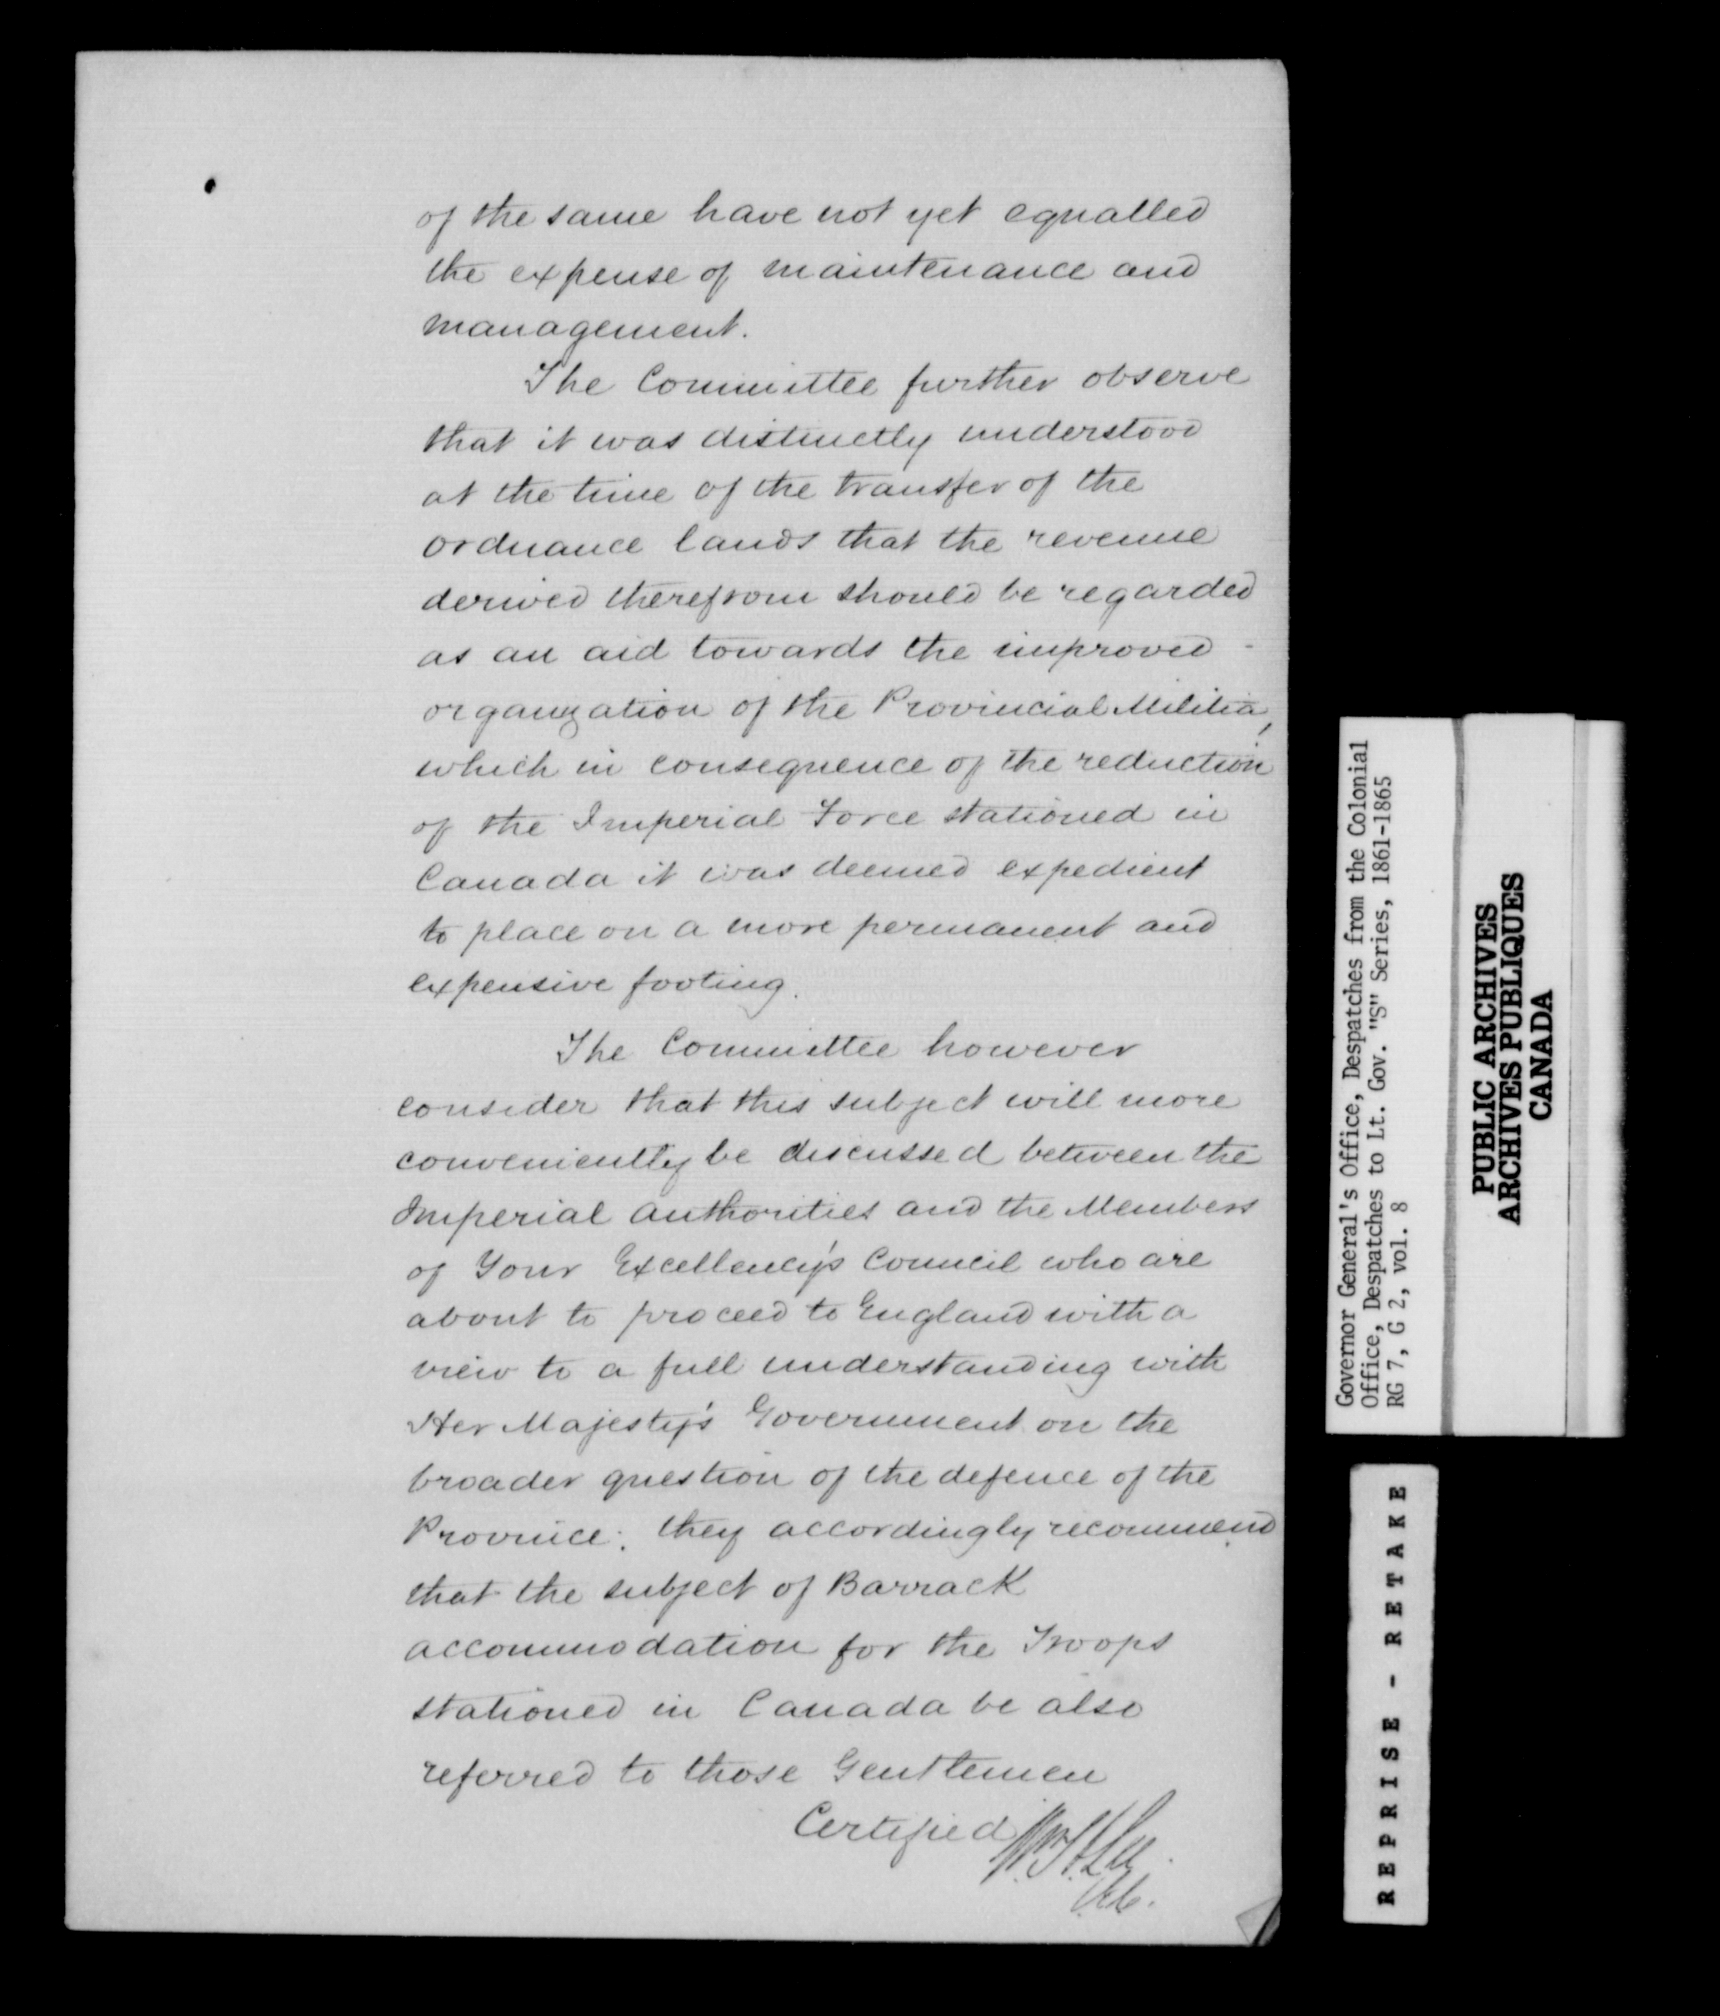 of the same have not yet equalled
the expense of maintenance and
management.
The Committee further observe
that it was distinctly understood
at the time of the transfer of the
ordnance lands that the revenue
derived therefrom should be regarded
as an aid towards the improved -
organization of the Provincial Militia,
which in consequence of the reduction
of the Imperial Force stationed in
Canada it was deemed expedient
to place on a more permanent and
expensive footing.
The Committee however
consider that this subject will more
conveniently be discussed between the
Imperial Authorities and the Members
of Your Excellency's Council who are
about to proceed to England with a
view to a full understanding with
Her Majesty's Government on the
broader question of the defence of the
Province; they accordingly recommend
that the subject of Barrack
accommodation for the Troops
stationed in Canada be also
referred to those Gentlemen
Certified
Governor General's Office, Despatches from the Colonial
Office, Despatches to Lt. Gov. "S" Series, 1861-1865
RG 7, G 2, vol. 8
PUBLIC ARCHIVES
ARCHIVES PUBLIQUES
CANADA
REPRISE - RETAKE